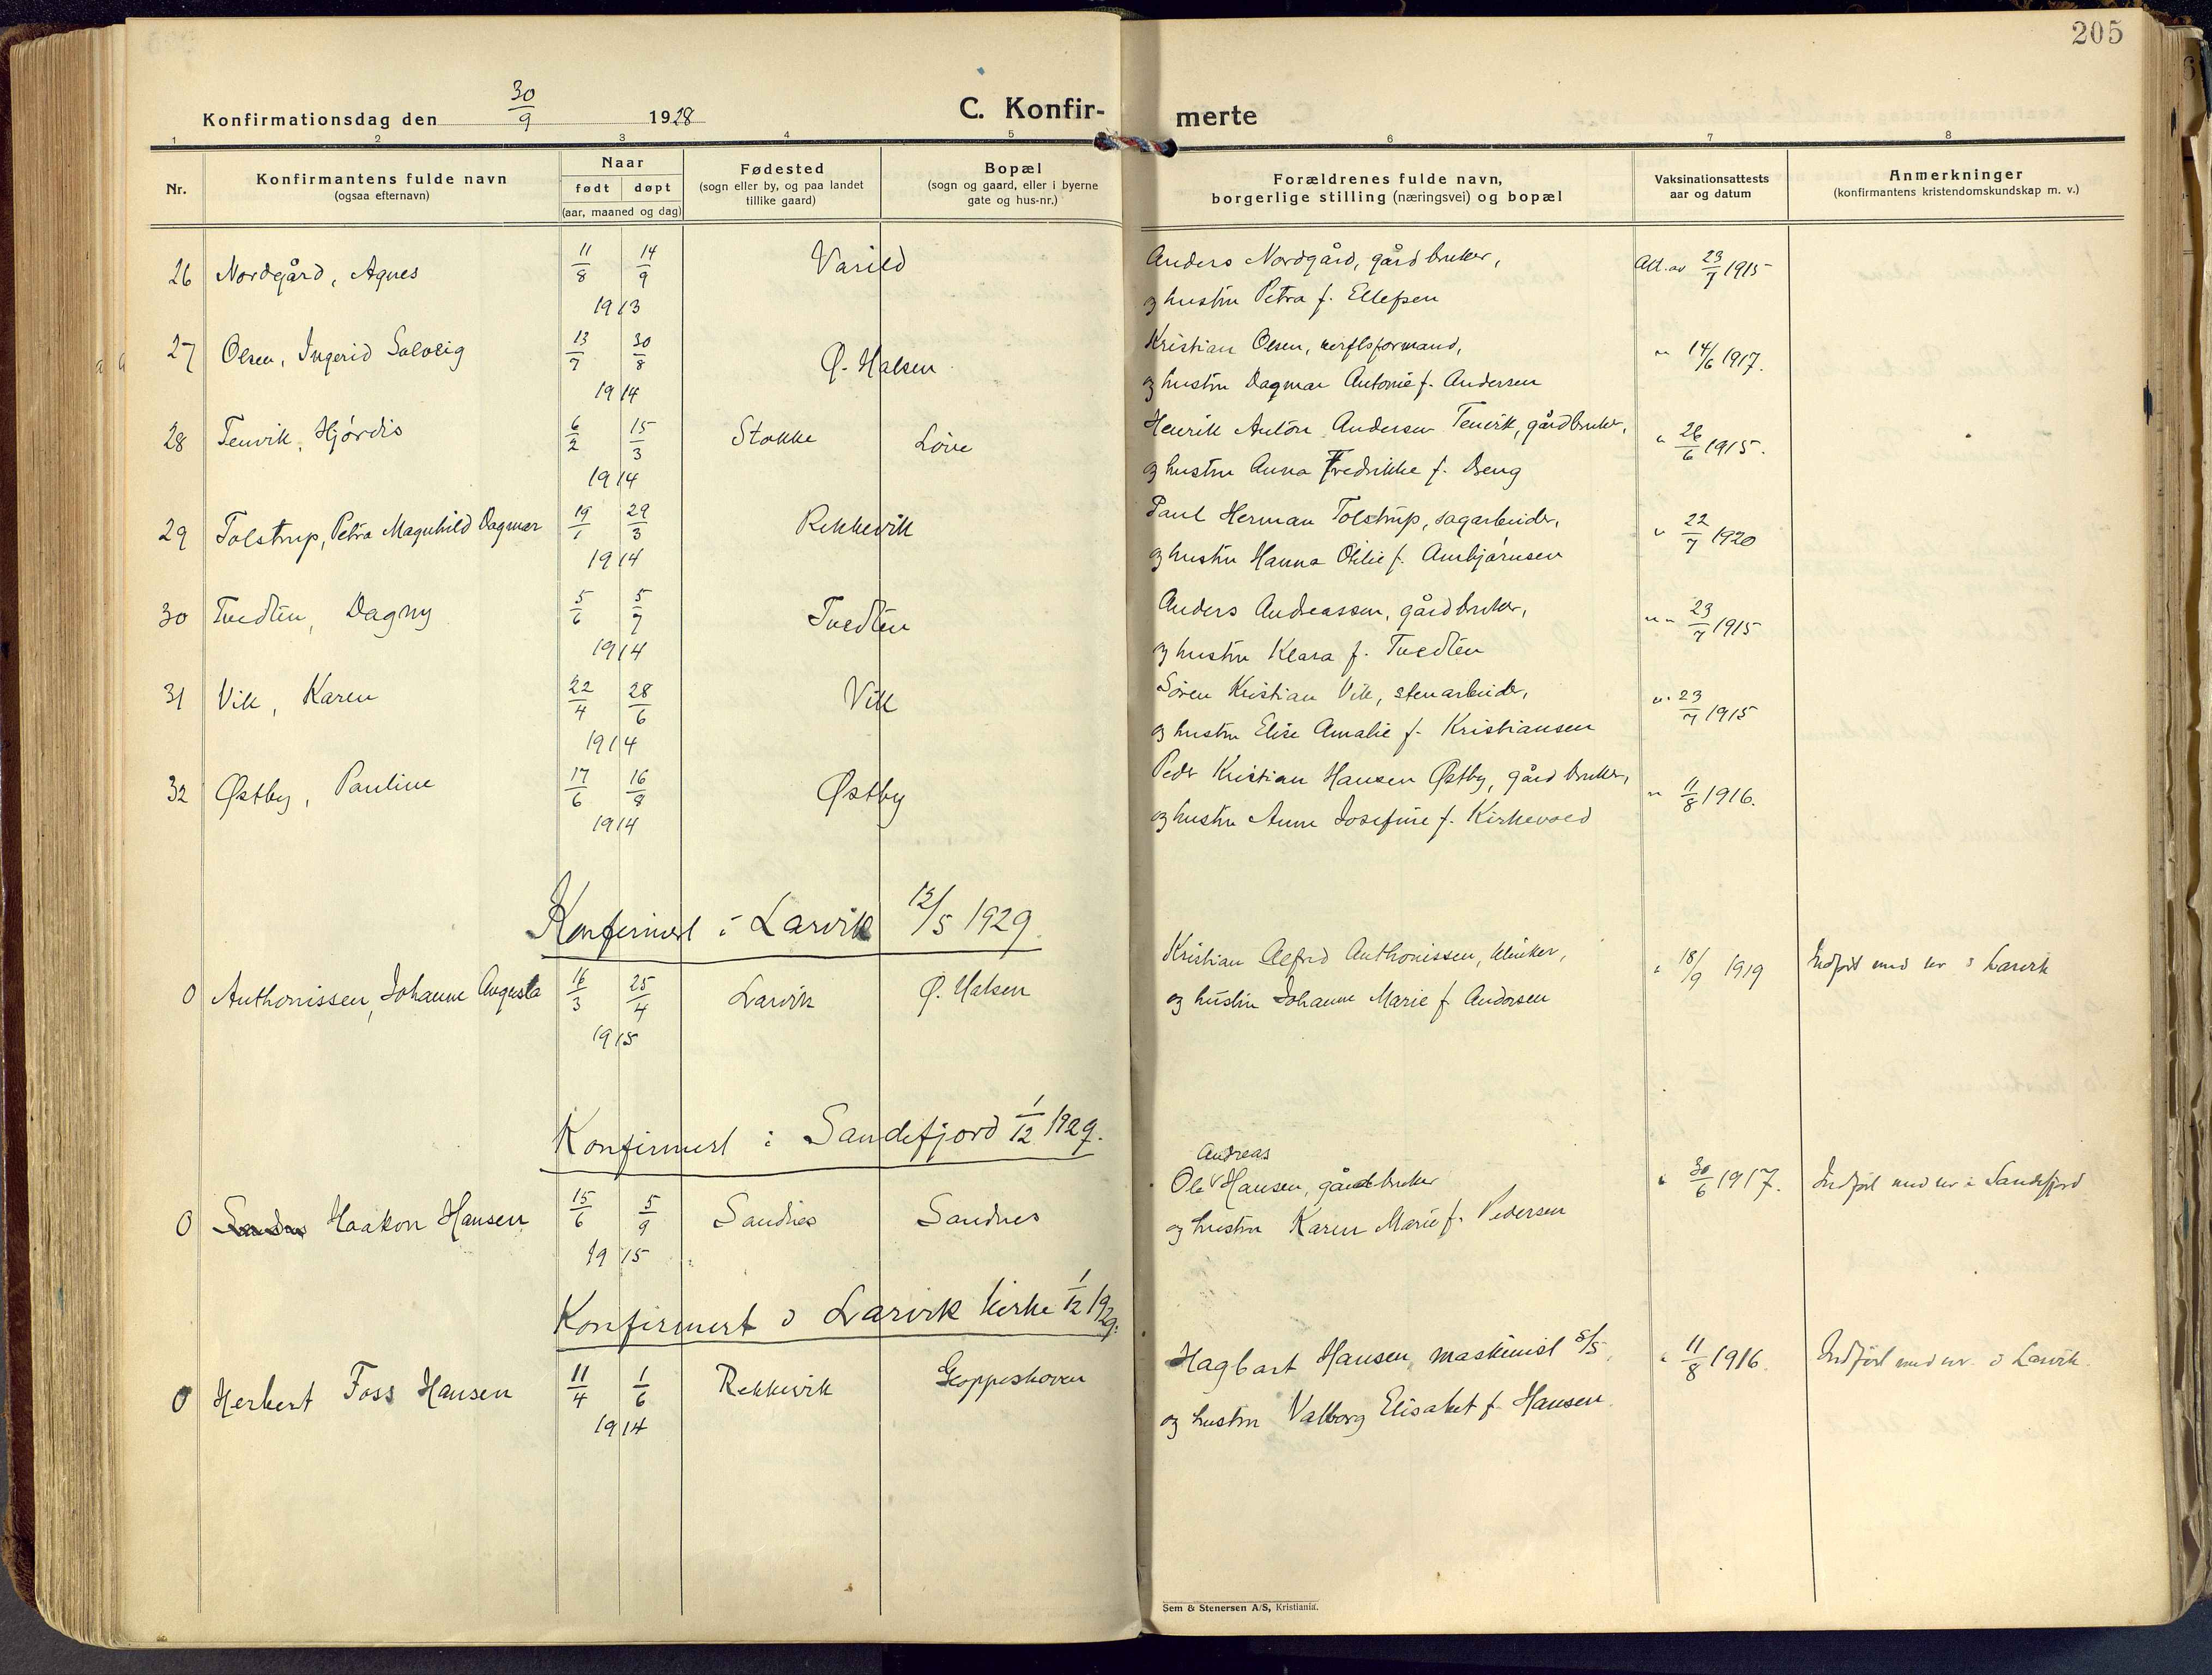 205
Konfirmationsdag den 30/9 1928
C. Konfir- merte
1 2 3 4 5 6 7 8
Nr.
Konfirmantens fulde navn
(ogsaa efternavn)
Naar
født døpt
(aar, maaned og dag)
Fødested
(sogn eller by, og paa landet
tillike gaard)
Bopæl
(sogn og gaard, eller i byerne
gate og hus-nr.)
Forældrenes fulde navn,
borgerlige stilling (næringsvei) og bopæl
Vaksinationsattests
aar og datum
Anmerkninger
(konfirmantens kristendomskundskap m. v.)
26 Nordgård, Agnes 11/8 14/9 1913 Varild
Anders Nordgård, gårdbruker,
og hustru Petra f. Ellefsen
Att. av 23/7 1915
27 Olsen, Ingerid Solveig 13/7 30/8 1914 Ø. Halsen
Kristian Olsen, verftsformand,
og hustru Dagmar Antonie f. Andersen
" 14/6 1917.
28 Tenvik, Hjördis 6/2 15/3 1914 Stokke Löve
Henrik Anton Andersen Tenvik, gårdbruker,
og hustru Anna Fredrikke f. Dseng
" 26/6 1915.
29 Tolstrup, Petra Magnhild Dagmar 19/1 29/3 1914 Rekkevik
Paul Herman Tolstrup, sagarbeider,
og hustru Hanna Otilie f. Arnbjørnsen
" 22/7 1920
30 Tvedten, Dagny 5/6 5/7 1914 Tvedten
Anders Andreassen, gårdbruker,
og hustru Klara f. Tvedten
" " 23/7 1915
31 Vik, Karen 22/4 28/6 1914 Vik
Sören Kristian Vik, stenarbeider,
og hustru Elise Amalie f. Kristiansen
" 23/7 1915
32 Østby, Pauline 17/6 16/8 1914 Østby
Peder Kristian Hansen Østby, gårdbruker,
og hustru Anne Josefine f. Kirkevold
" 11/8 1916.
Konfirmert i Larvik 12/5 1929.
0 Anthonissen, Johanne Augusta 16/3 25/4 1915 Larvik Ø. Halsen
Kristian Alfred Anthonissen, klinker,
og hustru Johanne Marie f. Andersen
" 18/9 1919
Indført med nr i Larvik
Konfirmert i Sandefjord 1/12 1929.
0 Haakon Hansen 15/6 5/9 1915 Sandnes Sandnes
Andreas
Ole Hansen, gårdbruker
og hustru Karen Marie f. Pedersen
" 30/6 1917.
Indført med nr i Sandefjord
Konfirmert i Larvik kirke 1/12 1929.
0 Herbert Foss Hansen 11/4 1/6 1914 Rekkevik Gloppeshoven
Hagbart Hansen, maskinist s/s,
og hustru Valborg Elisabet f. Hansen.
" 11/8 1916.
Indført med nr. i Larvik.
Sem & Stenersen A/S, Kristiania.